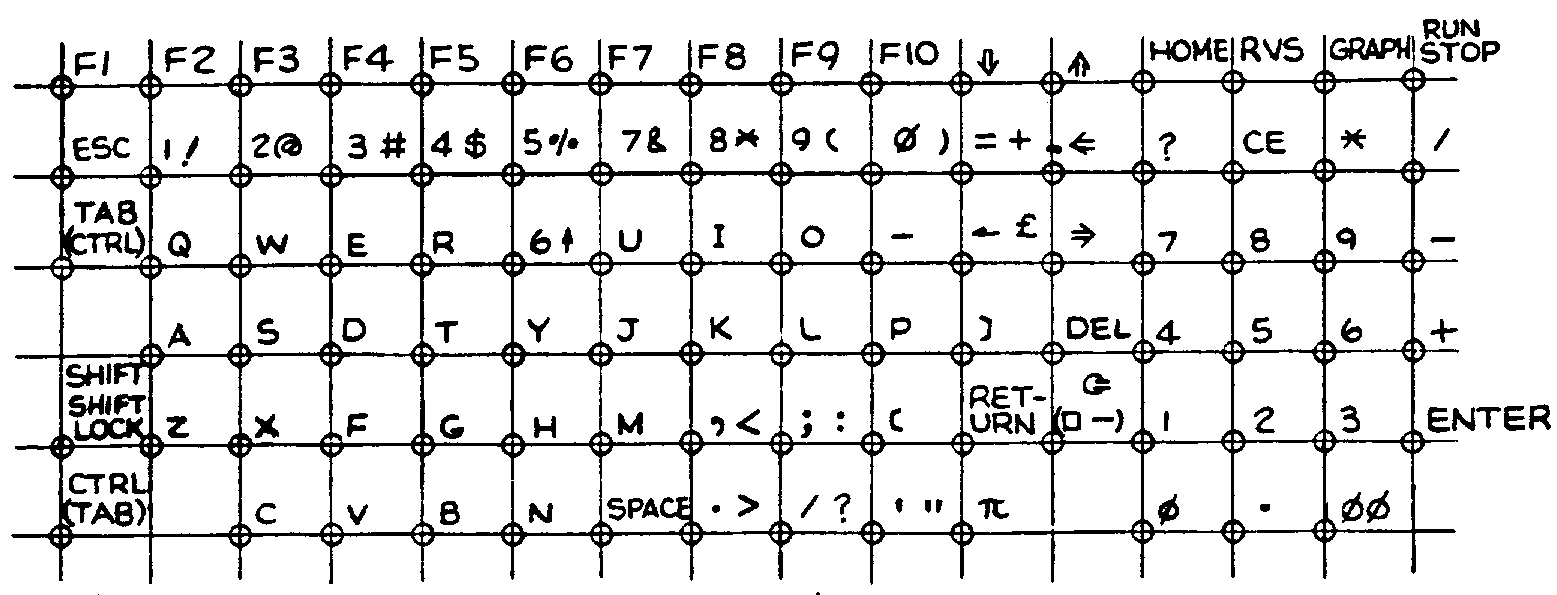 F1 F2 F3 F4 F5 F6 F7 F8 F9 F10 ⇩ ⇧ HOME RVS GRAPH RUN STOP
ESC 1! 2@ 3# 4$ 5% 7& 8* 9( Ø) =+ .⇐ ? CE * /
TAB (CTRL) Q W E R 6↑ U I O - ← £ ⇒ 7 8 9 -
A S D T Y J K L P ] DEL 4 5 6 +
SHIFT SHIFT LOCK Z X F G H M ,< ;: [ RET-URN (□ -) 1 2 3 ENTER
CTRL (TAB) C V B N SPACE .> /? '" π Ø . ØØ